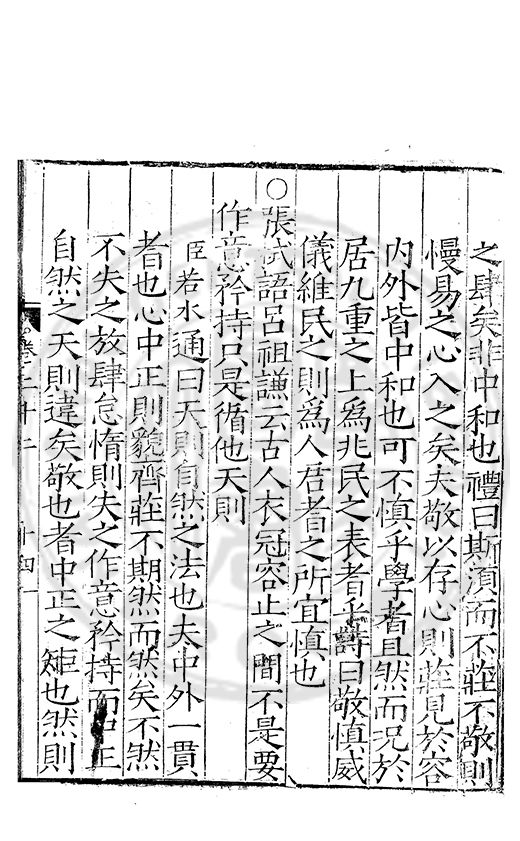 之肆矣非中和也禮曰斯須而不莊不敬則
慢易之心入之矣夫敬以存心則莊見於容
内外皆中和也可不慎乎學者且然而況於
居九重之上爲兆民之表者乎詩曰敬慎威
儀維民之則爲人君者之所宜慎也
○張栻語呂祖謙云古人衣冠容止之間不是要
作意矜持只是循他天則
臣若水通曰天則自然之法也夫中外一貫
者也心中正則貌齊莊不期然而然矣不然
不失之放肆怠惰則失之作意矜持而中正
自然之天則違矣敬也者中正之矩也然則
卷二十二 十四